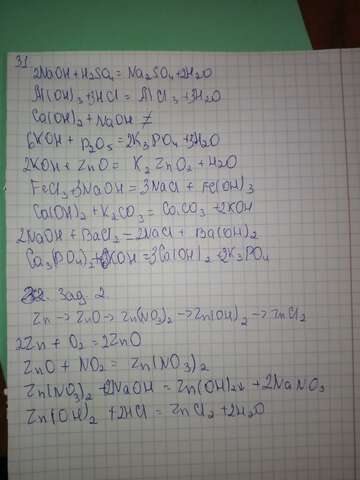 3)
2NaOH + H2SO4 = Na2SO4 + 2H2O
Al(OH)3 + 3HCl = AlCl3 + 3H2O
Ca(OH)2 + NaOH ≠
6KOH + P2O5 = 2K3PO4 + 3H2O
2KOH + ZnO = K2ZnO2 + H2O
FeCl3 + 3NaOH = 3NaCl + Fe(OH)3
Ca(OH)2 + K2CO3 = CaCO3 + 2KOH
2NaOH + BaCl2 = 2NaCl + Ba(OH)2
Ca3(PO4)2 + 6KOH = 3Ca(OH)2 + 2K3PO4
Зад. 2.
Zn → ZnO → Zn(NO3)2 → Zn(OH)2 → ZnCl2
2Zn + O2 = 2ZnO
ZnO + NO2 = Zn(NO3)2
Zn(NO3)2 + 2NaOH = Zn(OH)2↓ + 2NaNO3
Zn(OH)2 + 2HCl = ZnCl2 + 2H2O